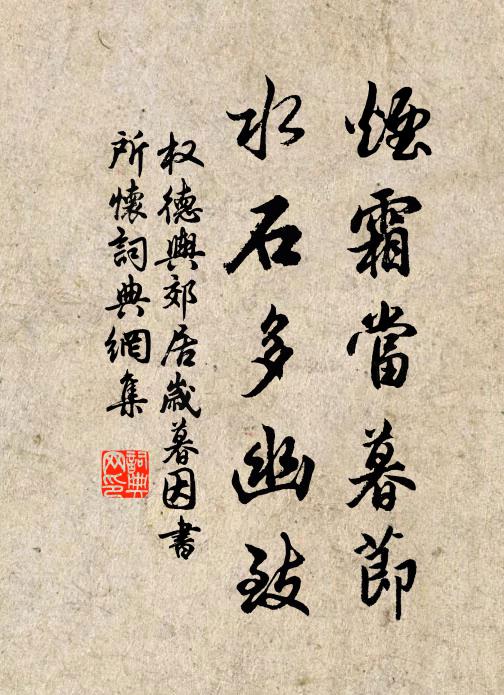 煙霜當暮節
水石多幽致
权德輿郊居歲暮因書
所懷詞典網集
詞典网印